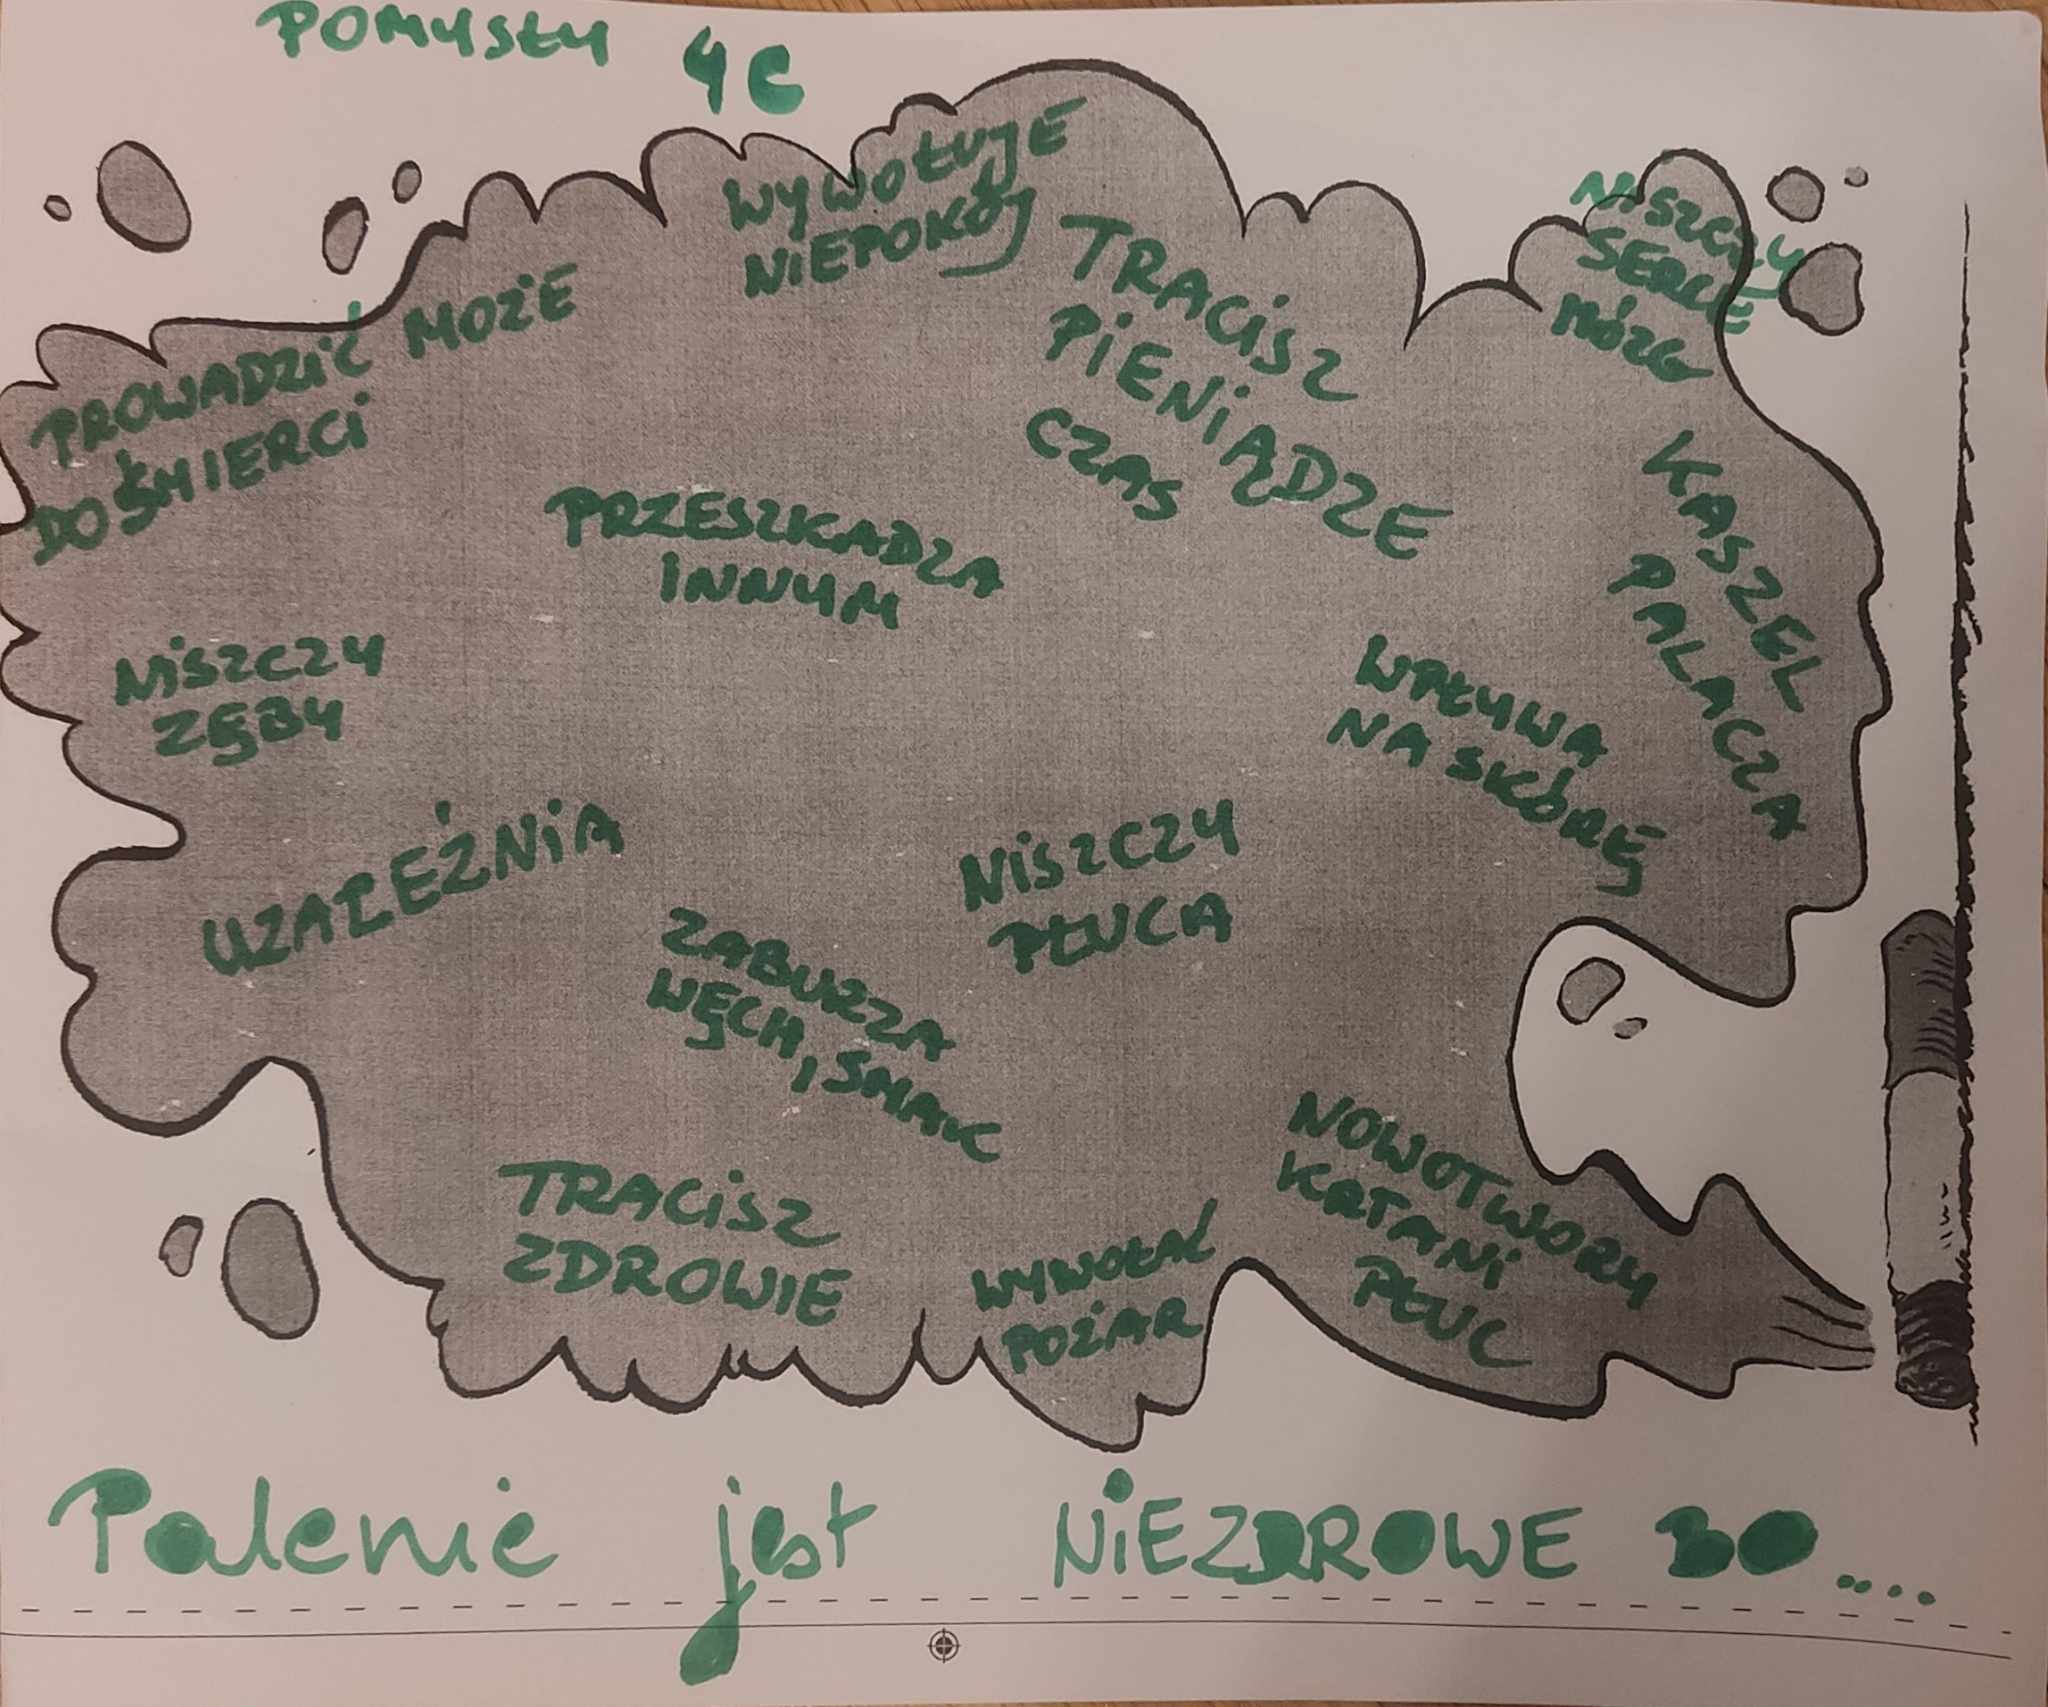 POMYSŁY 4C
WYWOŁUJE
NIEPOKÓJ
NISZCZY
SERCE
MÓZG
PROWADZIĆ MOŻE
DO ŚMIERCI
TRACISZ
PIENIĄDZE
CZAS
KASZEL
PALACZA
PRZESZKADZA
INNYM
NISZCZY
ZĘBY
WPŁYWA
NA SKÓRĘ
UZALEŻNIA
NISZCZY
PŁUCA
ZABURZA
WĘCH, SMAK
TRACISZ
ZDROWIE
WYWOŁAĆ
POŻAR
NOWOTWORY
KRTANI
PŁUC
Palenie jest NIEZDROWE BO....